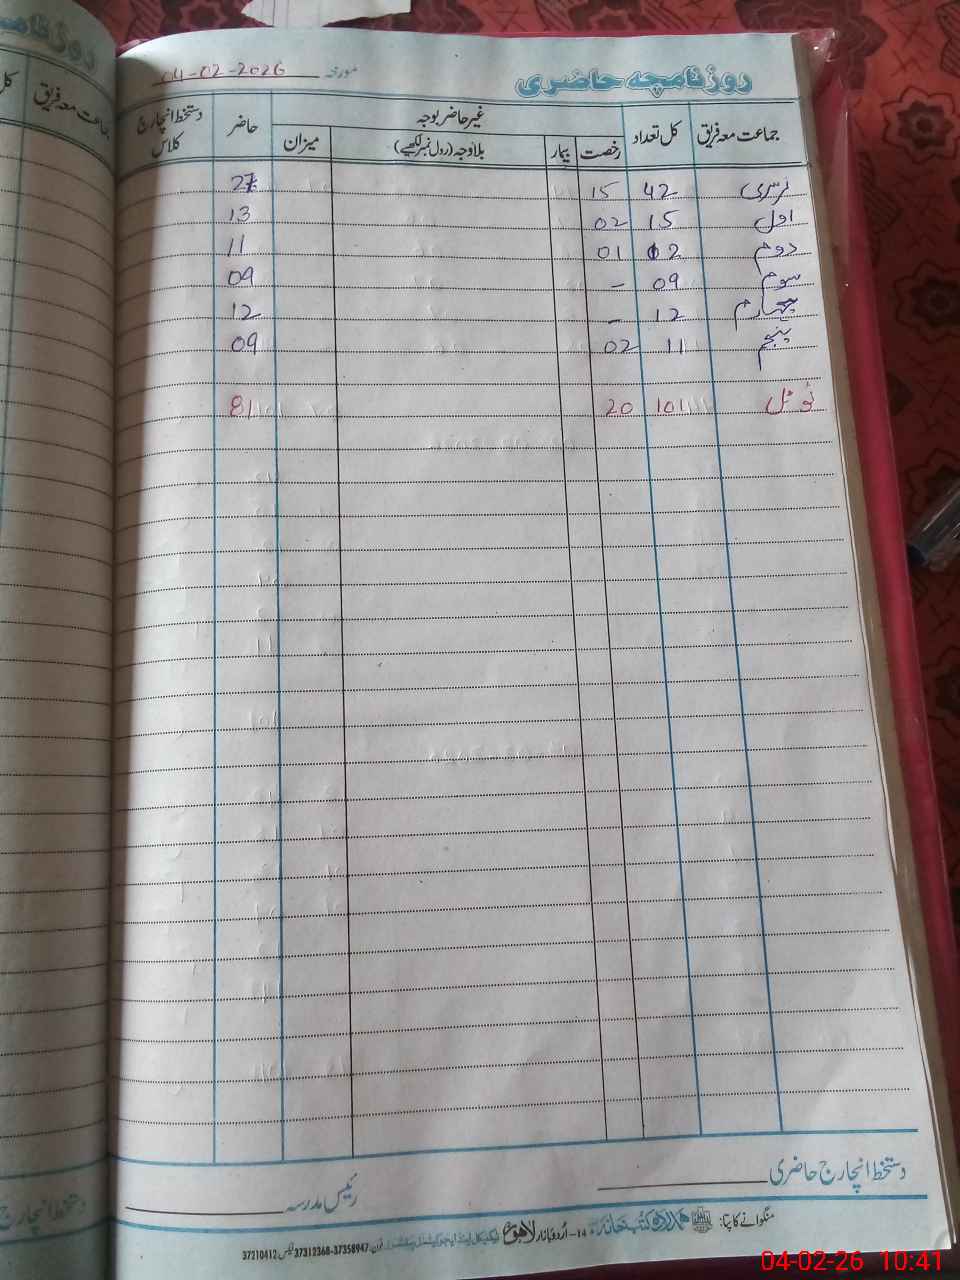 روزنامچہ حاضری مورخہ 04-02-2026
جماعت معہ فریق کل تعداد غیر حاضر بوجہ حاضر دستخط انچارج کلاس
رخصت بیمار بلاوجہ (رول نمبر لکھیے) میزان
نرسری 42 15 27
اول 15 02 13
دوم 12 01 11
سوم 09 - 09
چہارم 12 - 12
پنجم 11 02 09
ٹوٹل 101 20 81
دستخط انچارج حاضری
رئیس مدرسہ
منگوانے کا پتا: ہمدرد کتب خانہ 14- اُردو بازار لاہور فون: 37358947-37312368 فیکس 37210412
جماعت معہ فریق
کل
04-02-26 10:41